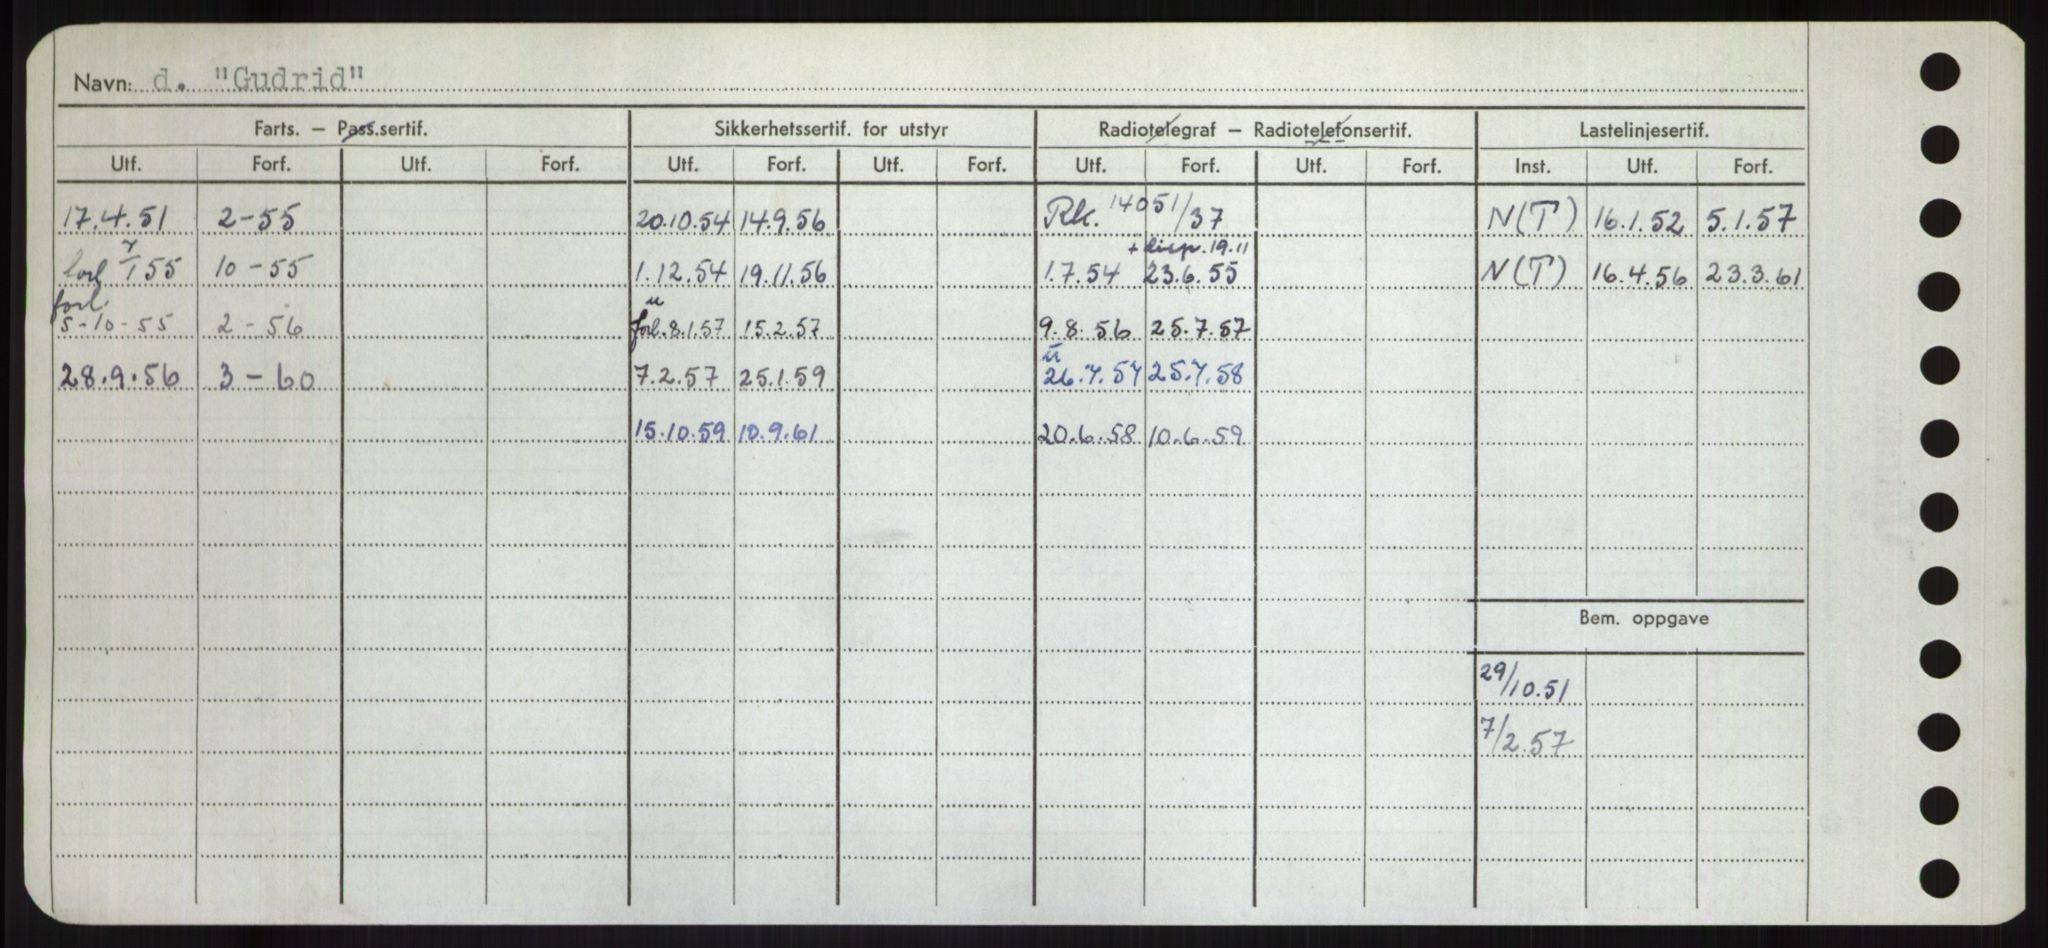 Navn: d. "Gudrid"
Farts. – Pass.sertif. Sikkerhetssertif. for utstyr Radiotelegraf – Radiotelefonsertif. Lastelinjesertif.
Utf. Forf. Utf. Forf. Utf. Forf. Utf. Forf. Utf. Forf. Utf. Forf. Inst. Utf. Forf.
17.4.51 2-55 20.10.54 14.9.56 Rk. 14051/37 N(T) 16.1.52 5.1.57
+ disp. 19.11
forl 7/1 55 10-55 1.12.54 19.11.56 1.7.54 23.6.55 N(T) 16.4.56 23.3.61
forl.
5-10-55 2-56 forl. 8.1.57 15.2.57 9.8.56 25.7.57
28.9.56 3-60 7.2.57 25.1.59 26.7.57 25.7.58
15.10.59 10.9.61 20.6.58 10.6.59
Bem. oppgave
29/10.51
7/2.57